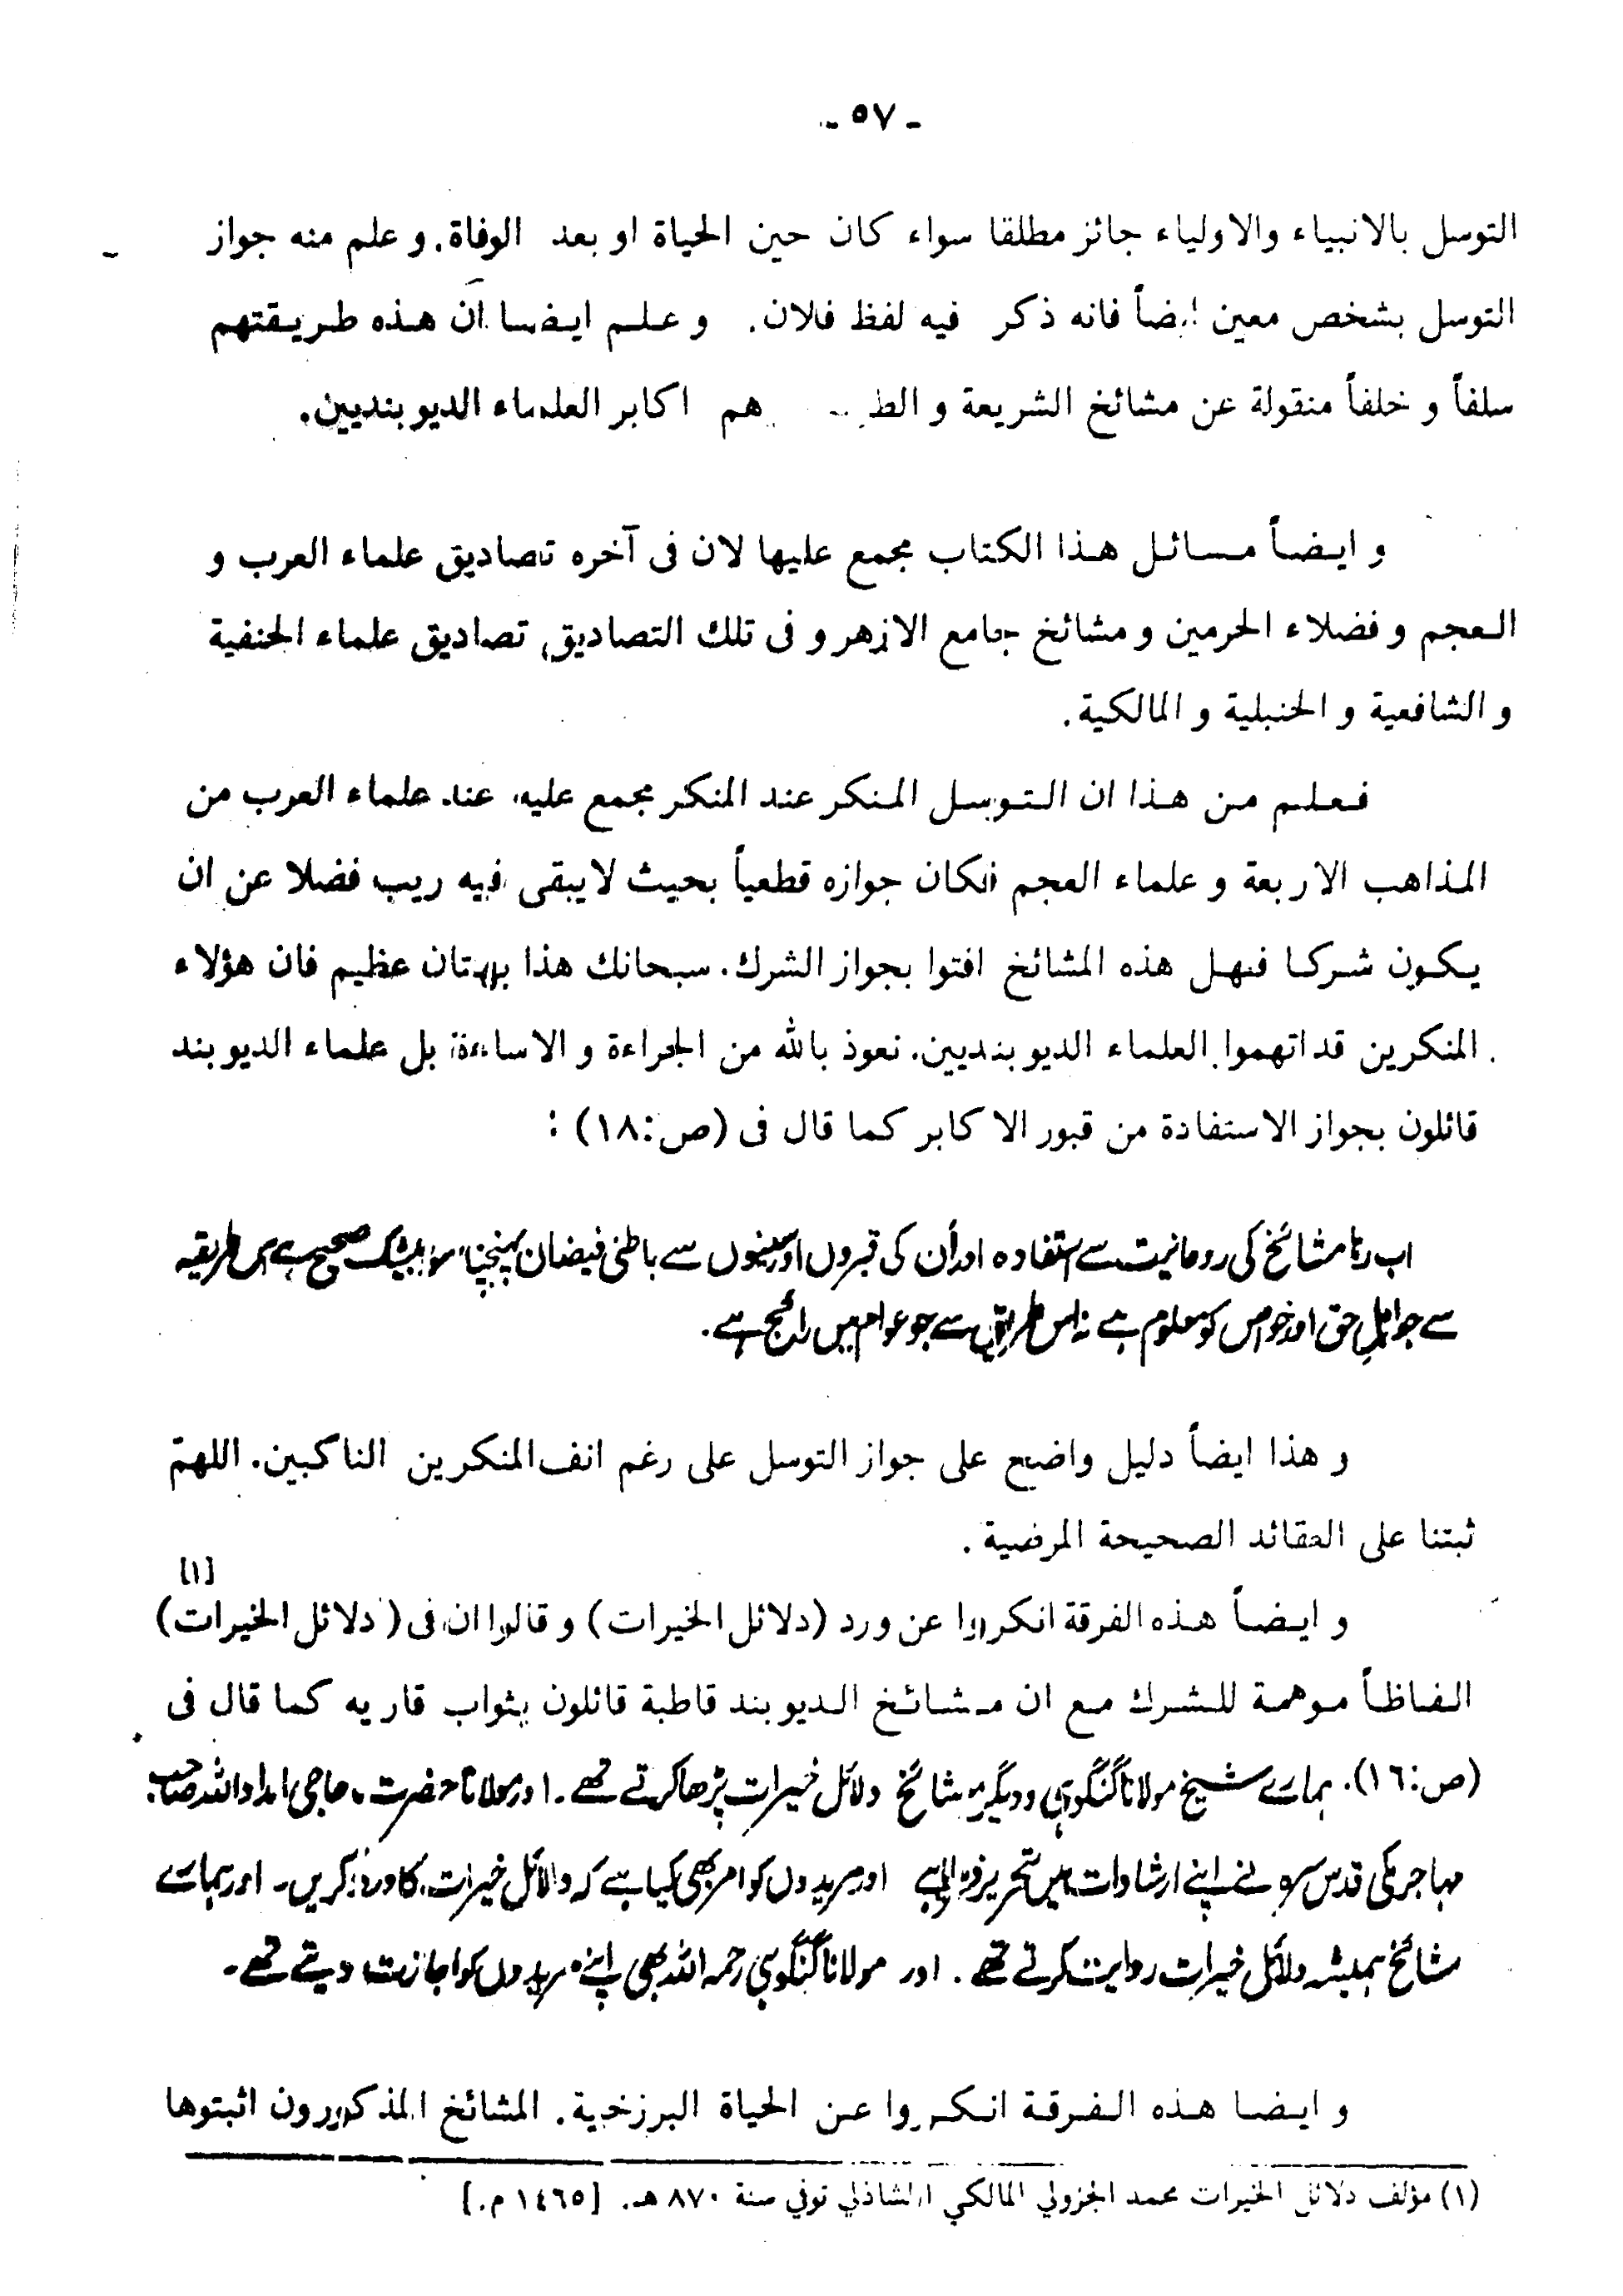 - ٥٧ -
التوسل بالانبياء والاولياء جائز مطلقا سواء كان حين الحياة او بعد الوفاة. و علم منه جواز
التوسل بشخص معين ايضاً فانه ذكر فيه لفظ فلان. و علم ايضا ان هذه طريقتهم
سلفاً و خلفاً منقولة عن مشائخ الشريعة و الط هم اكابر العلماء الديوبنديين.
و ايضاً مسائل هذا الكتاب مجمع عليها لان فى آخره تصاديق علماء العرب و
العجم و فضلاء الحرمين و مشائخ جامع الازهر و فى تلك التصاديق تصاديق علماء الحنفية
و الشافعية و الحنبلية و المالكية.
فعلم من هذا ان التوسل المنكر عند المنكر مجمع عليه عند علماء العرب من
المذاهب الاربعة و علماء العجم فكان جوازه قطعياً بحيث لايبقى فيه ريب فضلا عن ان
يكون شركا فهل هذه المشائخ افتوا بجواز الشرك. سبحانك هذا بهتان عظيم فان هؤلاء
المنكرين قد اتهموا العلماء الديوبنديين. نعوذ بالله من الجراءة و الاساءة بل علماء الديوبند
قائلون بجواز الاستفادة من قبور الاكابر كما قال فى (ص:١٨) :
اب رہا مشائخ کی روحانیت سے استفادہ اور اُن کی قبروں اور سینوں سے باطنی فیضان پہنچنا، سو بیشک صحیح ہے اس طریقہ
سے جو اہلِ حق اور خواص کو معلوم ہے نہ اس طریق سے جو عوام میں رائج ہے.
و هذا ايضاً دليل واضح على جواز التوسل على رغم انف المنكرين الناكبين. اللهمّ
ثبتنا على العقائد الصحيحة المرضية.
و ايضاً هذه الفرقة انكروا عن ورد (دلائل الخيرات) و قالوا ان فى (دلائل الخيرات) [١]
الفاظاً موهمة للشرك مع ان مشائخ الديوبند قاطبة قائلون بثواب قاريه كما قال فى
(ص:١٦). ہمارے شیخ مولانا گنگوہی و دیگر مشائخ دلائل خیرات پڑھا کرتے تھے۔ اور مولانا حضرت حاجی امداد اللہ صاحب
مہاجر مکی قدس سرہ نے اپنے ارشادات میں تحریر فرمایا ہے اور مریدوں کو امر بھی کیا ہے کہ دلائل خیرات کا ورد کریں۔ اور ہمارے
مشائخ ہمیشہ دلائل خیرات روایت کرتے تھے. اور مولانا گنگوہی رحمہ اللہ بھی اپنے مریدوں کو اجازت دیتے تھے۔
و ايضا هذه الفرقة انكروا عن الحياة البرزخية. المشائخ المذكورون اثبتوها
(١) مؤلف دلائل الخيرات محمد الجزولي المالكي الشاذلي توفي سنة ٨٧٠ هـ. [١٤٦٥ م.]